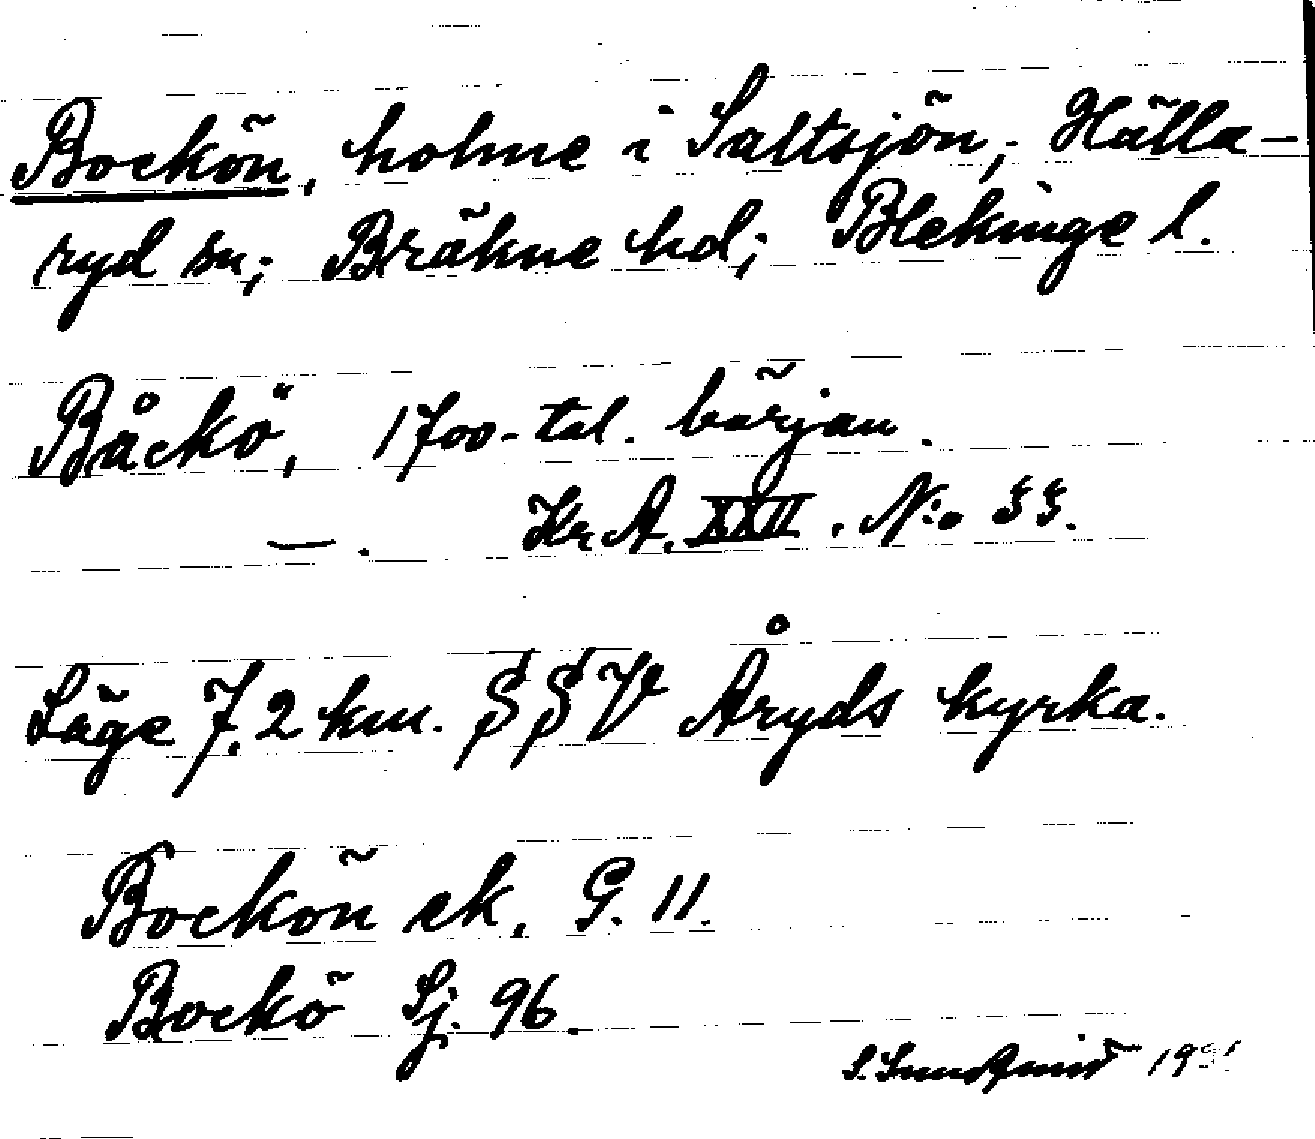 Bockön, holme i Saltsjön; Hälla-
ryd sn; Bräkne hd; Blekinge l.
Båckö, 1700-tal. början.
—. Kr A. XXII. N:o 33.
Läge 7,2 km. SSV Åryds kyrka.
Bockön ek. G. 11.
Bockö Sj. 96.
S.